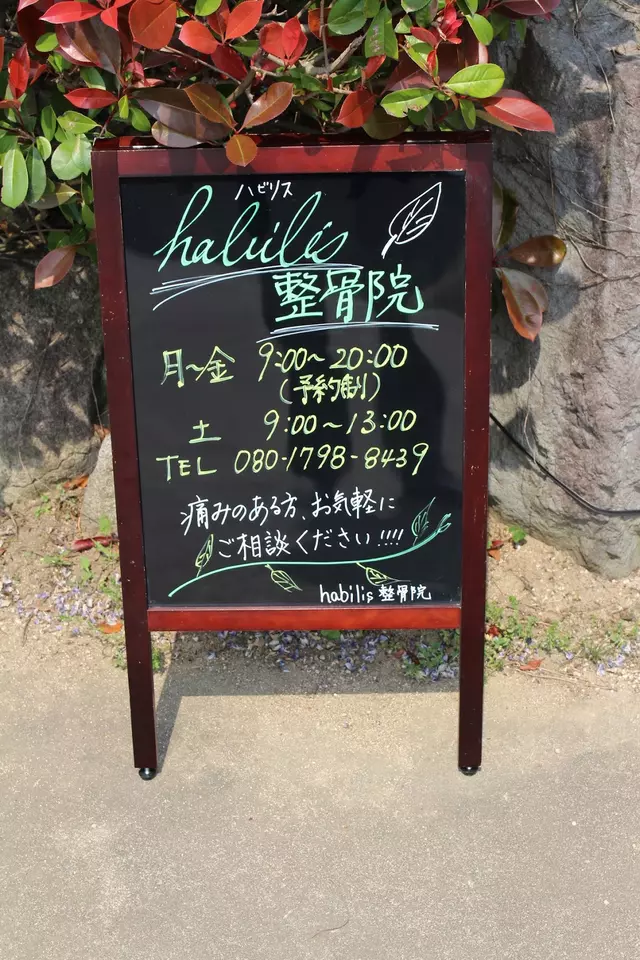 ハビリス
habilis
整骨院
月～金 9:00～20:00
(予約制)
土 9:00～13:00
TEL 080-1798-8439
痛みのある方、お気軽に
ご相談ください!!!!
habilis 整骨院